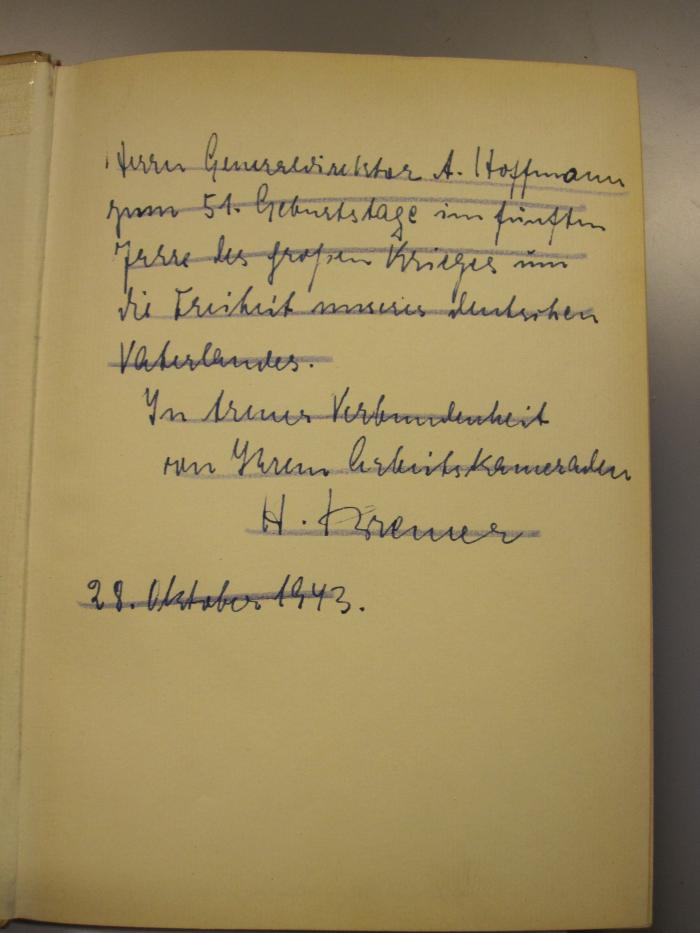 Herrn Generaldirektor A. Hoffmann
zum 51. Geburtstage im fünften
Jahre des großen Krieges um
die Freiheit unseres deutschen
Vaterlandes.
In treuer Verbundenheit
von Ihrem Arbeitskameraden
H. Kremer
28. Oktober 1943.